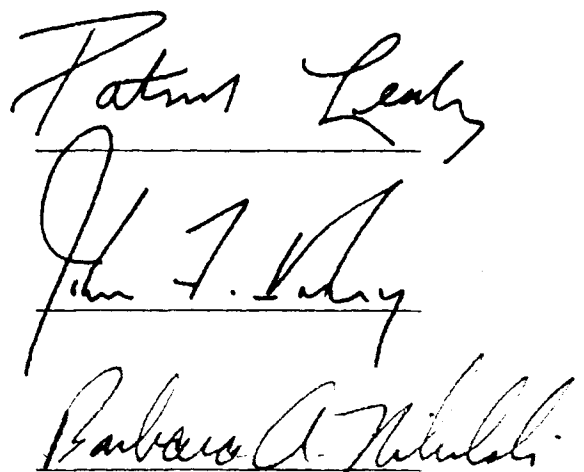 Patrick Leahy
John F. Kerry
Barbara A. Mikulski